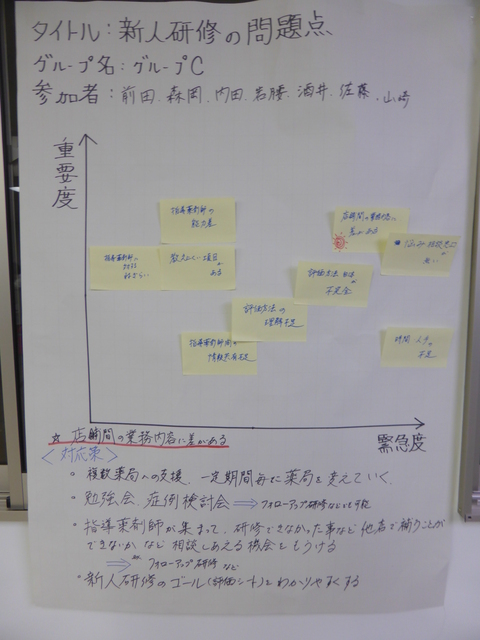 タイトル：新人研修の問題点
グループ名：グループC
参加者：前田、森岡、内田、岩腰、酒井、佐藤、山崎
重要度
指導薬剤師の
能力差
店舗間の業務内容に
差がある
指導薬剤師に
教えにくい項目が
ある
悩み相談窓口が
ない
評価方法自体が
不完全
評価方法の
理解不足
指導薬剤師間の
情報共有不足
時間 人手
不足
緊急度
☆ 店舗間の業務内容に差がある
＜対応策＞
・複数薬局への支援、一定期間毎に薬局を変えていく。
・勉強会、症例検討会 ⇒ フォローアップ研修なども可能
・指導薬剤師が集まって、研修できなかった事など他店で補うことが
できないか など 相談しあえる機会をもうける
⇒ フォローアップ研修 など
・新人研修のゴール（評価シート）をわかりやすくする